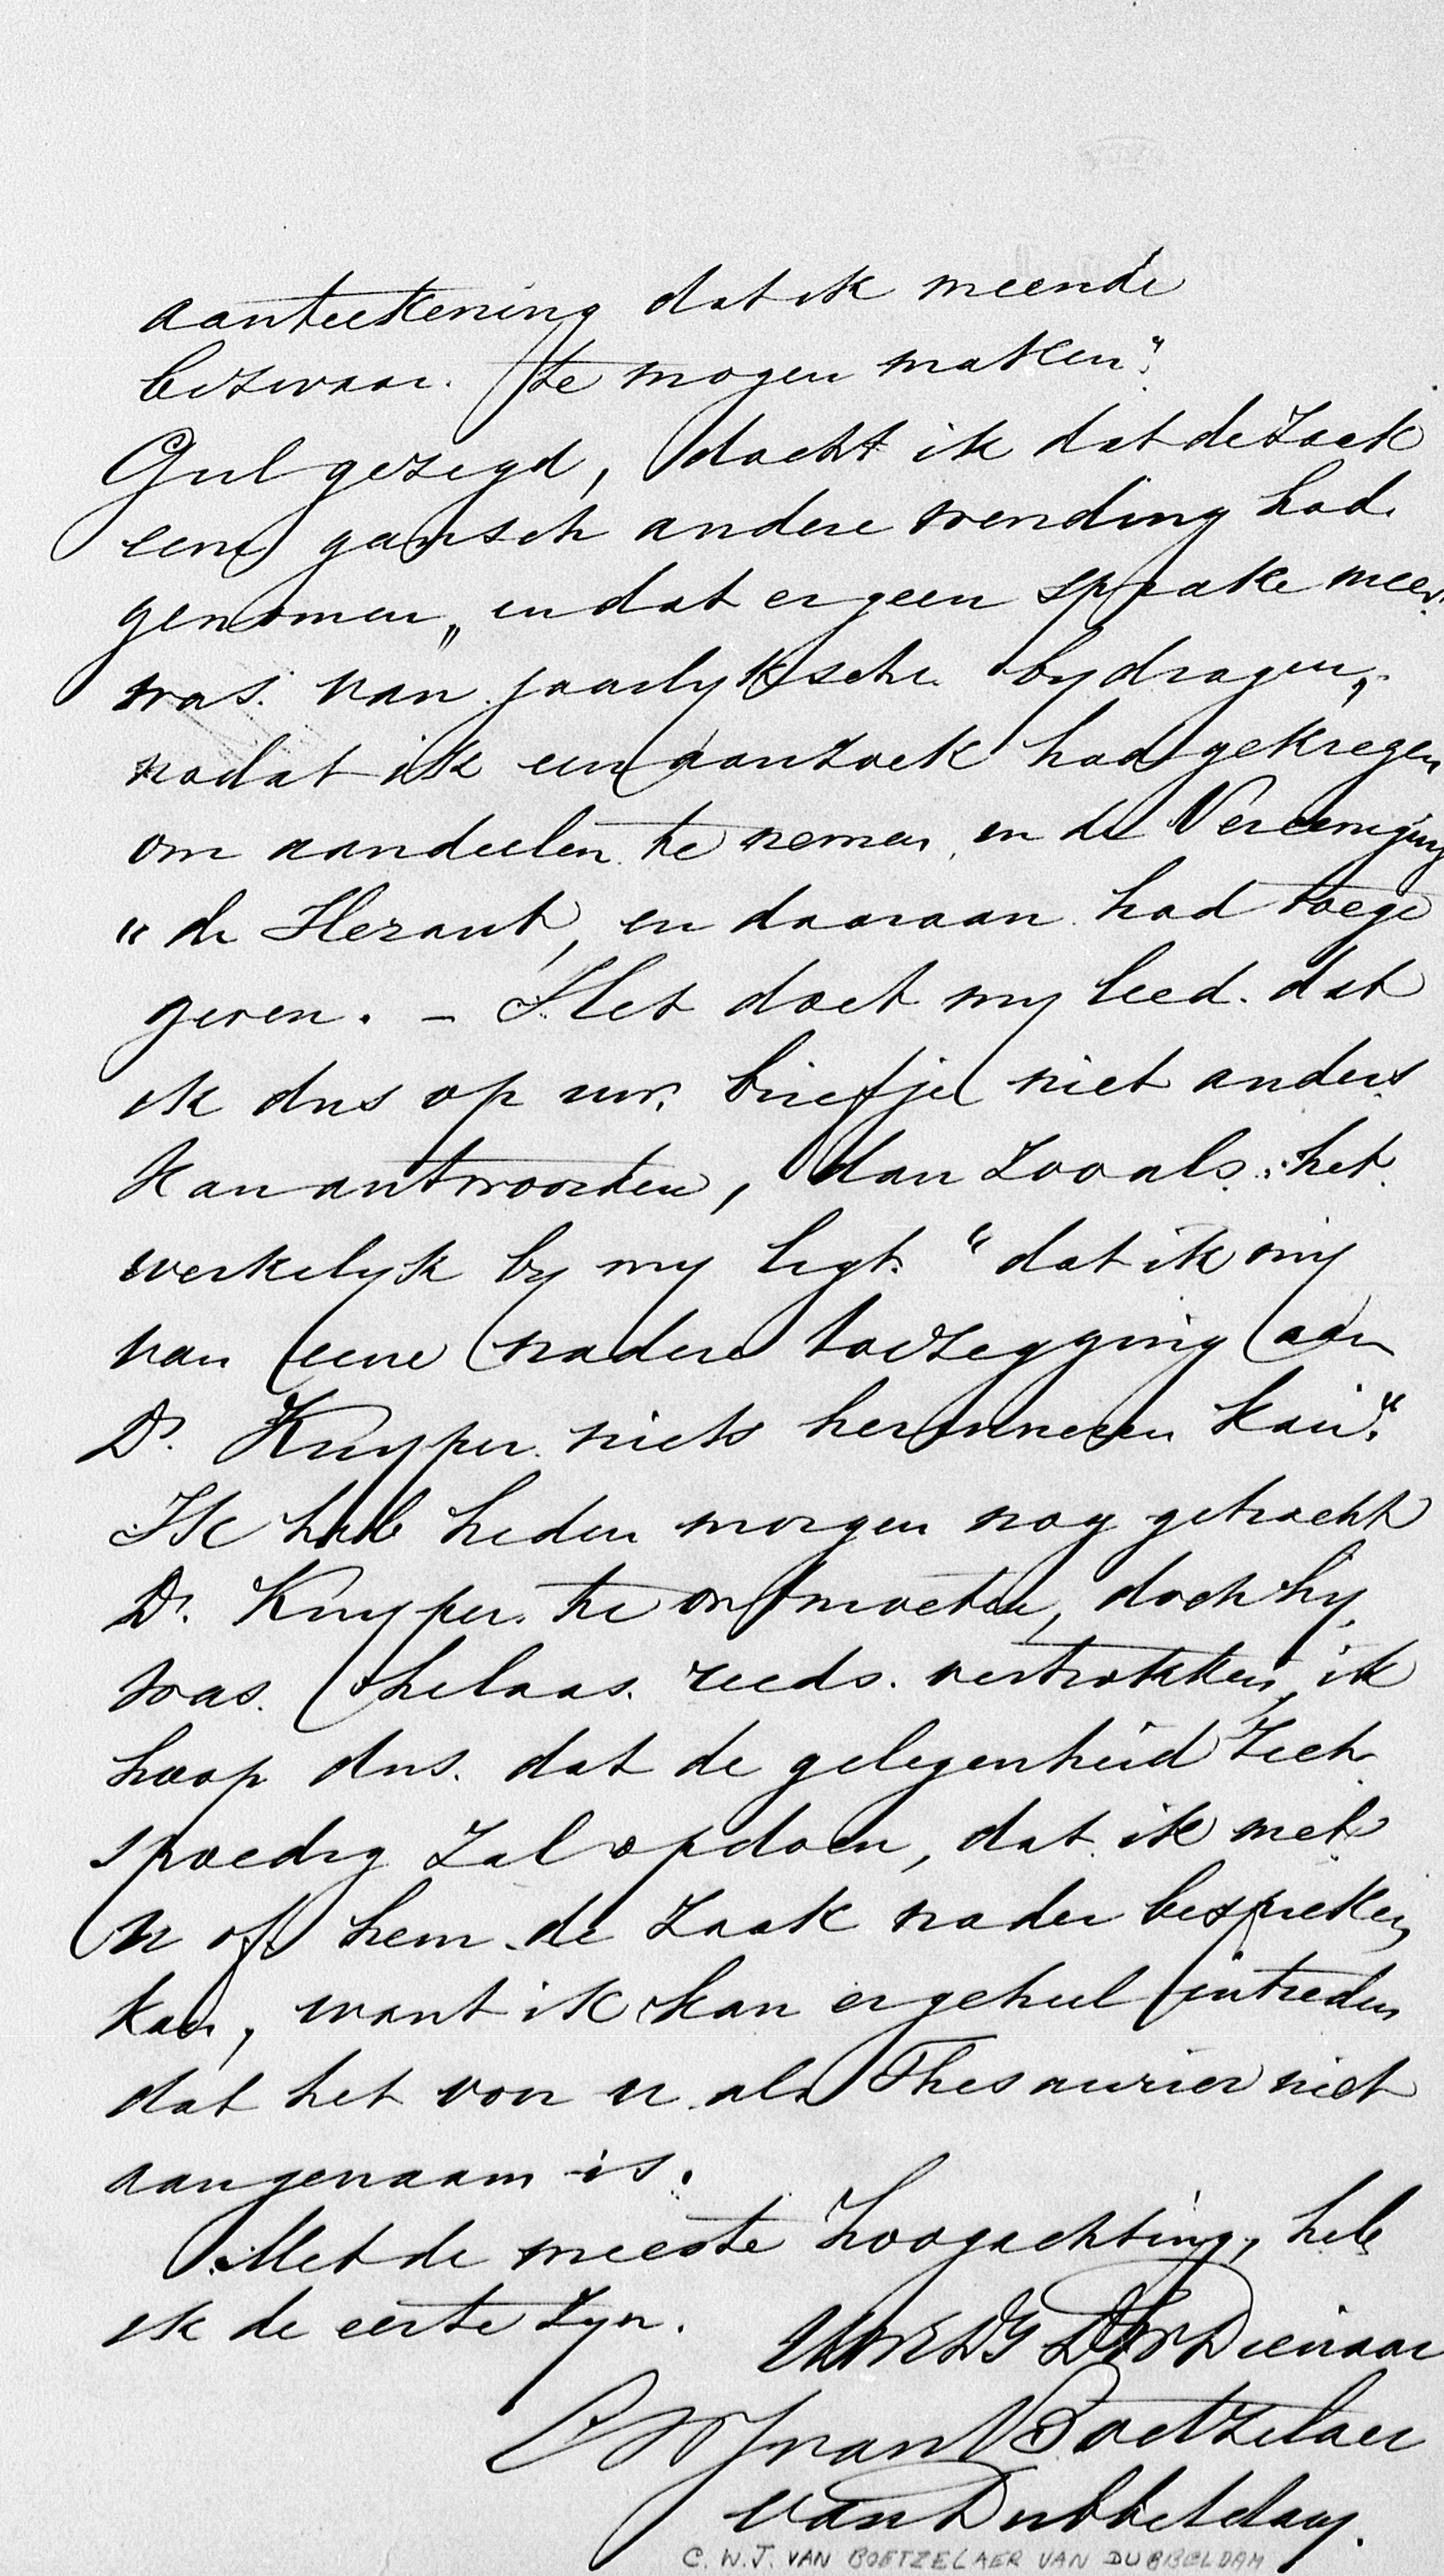 aanteekening dat ik meende
bezwaar te mogen maken".
Gul gezegd, dacht ik dat de zaak
eene gansch andere wending had
genomen „en dat er geen sprake meer
was van jaarlyksche bydragen„
nadat ik een aanzoek had gekregen
om aandeelen te nemen in de Vereeniging
"de Heraut, en daaraan had toege
geven. - Het doet my leed dat
ik dus op uw briefje niet anders
kan antwoorden, dan zooals het
werkelyk by my ligt "dat ik my
van eene nadere toezegging aan
Dr. Kuyper niets herinneren kan".
Ik heb heden morgen nog getracht
Dr. Kuyper te ontmoeten, doch hy
was helaas reeds vertrokken, ik
hoop dus dat de gelegenheid zich
spoedig zal opdoen, dat ik met
u of hem de zaak nader bespreken
kan, want ik kan er geheel intreden
dat het voor u als Thesaurier niet
aangenaam is.
Met de meeste hoogachting, heb
ik de eer te zyn.
UwEDG DWDienaar
CWJ van Boetzelaer
van Dubbeldam.
C. W. J. VAN BOETZELAER VAN DUBBELDAM